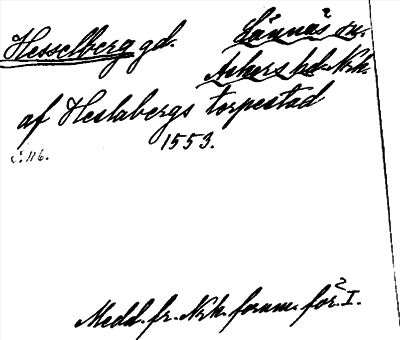 Hesselberg gd.
Lännäs sn.
Askers hd. Nrk.
af Heslabergs torpestad
1553.
C. 116.
Medd. fr. Nrk. fornm. för. I.